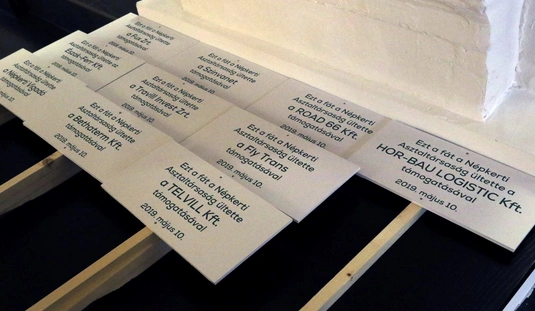 Ezt a fát a Népkerti
Asztaltársaság ültette
a Fux Zrt.
támogatásával
2019. május 10.
Ezt a fát a Népkerti
Asztaltársaság ültette
a Sanvanet
támogatásával
Ezt a fát a Népkerti
Asztaltársaság ültette
a ROAD 66 Kft.
támogatásával
2019. május 10.
Ezt a fát a Népkerti
Asztaltársaság ültette a
HOR-BAU LOGISTIC Kft.
támogatásával
2019. május 10.
Ezt a fát a Népkerti
Asztaltársaság ültette
Északfém Kft.
támogatásával
Ezt a fát a Népkerti
Asztaltársaság ültette
a Travill Invest Zrt.
támogatásával
2019. május 10.
Ezt a fát a Népkerti
Asztaltársaság ültette
a Fly Trans
támogatásával
2019. május 10.
a Népkerti Vigadó
támogatásával
Ezt a fát a Népkerti
Asztaltársaság ültette
a Bethaterm Kft.
támogatásával
2019. május 10.
Ezt a fát a Népkerti
Asztaltársaság ültette
a TELVILL Kft.
támogatásával
2019. május 10.